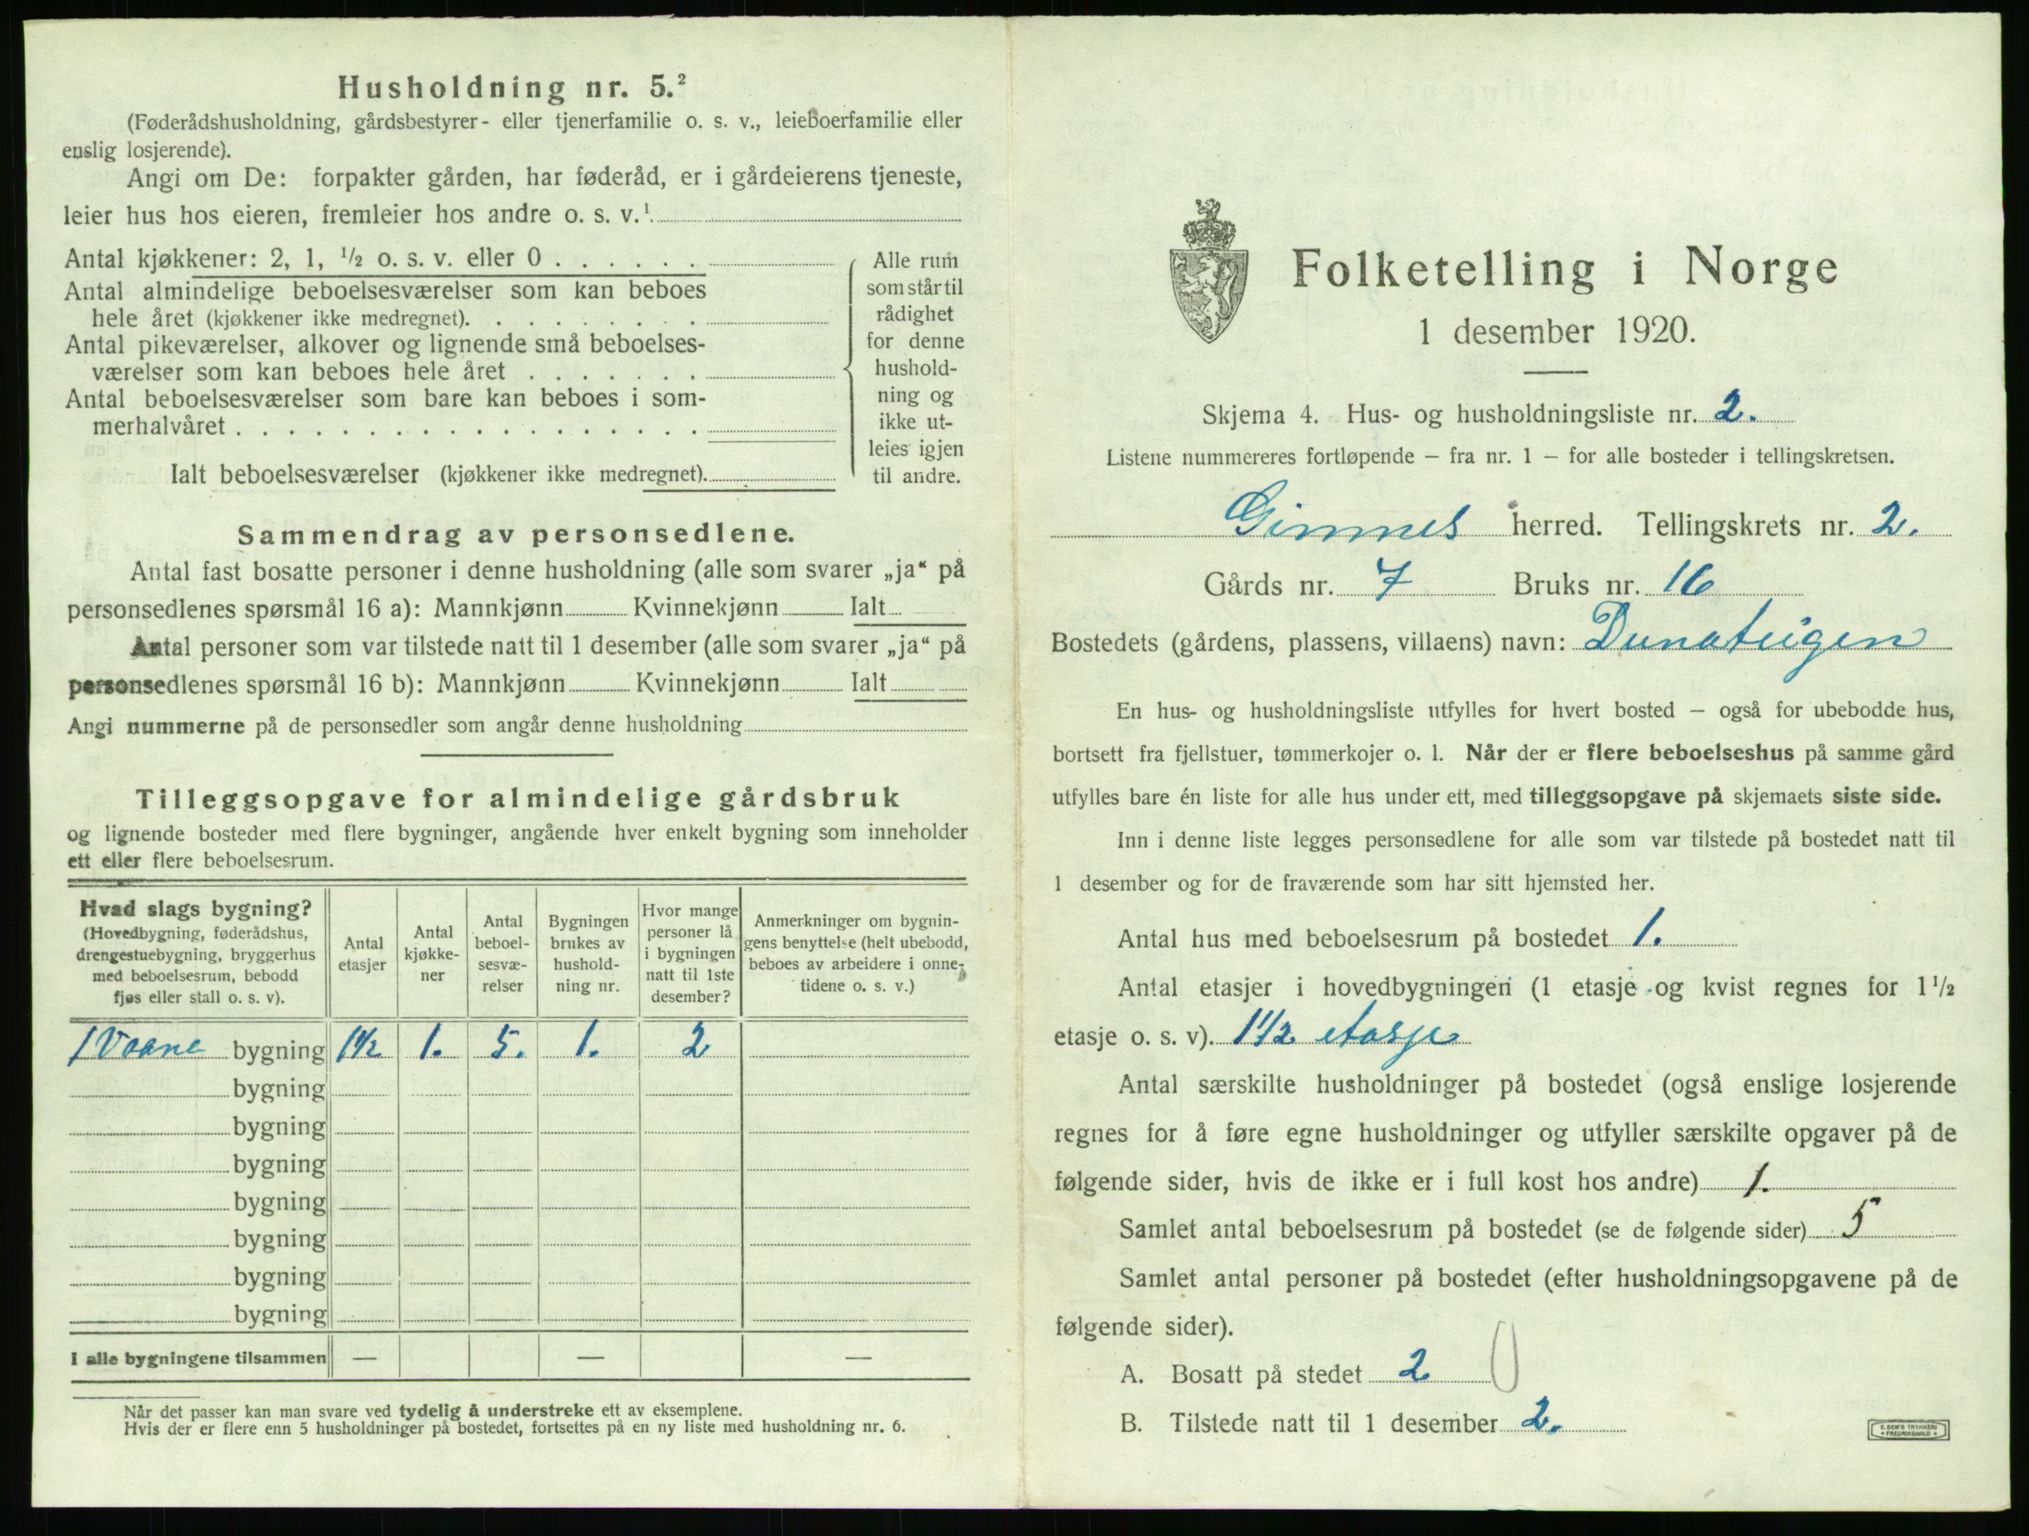 Husholdning nr. 5.²
(Føderådshusholdning, gårdsbestyrer- eller tjenerfamilie o. s. v., leieboerfamilie eller
enslig losjerende).
Angi om De: forpakter gården, har føderåd, er i gårdeierens tjeneste,
leier hus hos eieren, fremleier hos andre o. s. v.¹
Antal kjøkkener: 2, 1, ½ o. s. v. eller 0 . . . . . .
Antal almindelige beboelsesværelser som kan beboes
hele året (kjøkkener ikke medregnet). . . . . . . . .
Antal pikeværelser, alkover og lignende små beboelses-
værelser som kan beboes hele året . . . . . . .
Antal beboelsesværelser som bare kan beboes i som-
merhalvåret . . . . . . . . . . . . . . . . . .
Ialt beboelsesværelser (kjøkkener ikke medregnet).
Alle rum
som står til
rådighet
for denne
hushold-
ning og
ikke ut-
leies igjen
til andre.
Sammendrag av personsedlene.
Antal fast bosatte personer i denne husholdning (alle som svarer „ja“ på
personsedlenes spørsmål 16 a): Mannkjønn Kvinnekjønn Ialt
Antal personer som var tilstede natt til 1 desember (alle som svarer „ja“ på
personsedlenes spørsmål 16 b): Mannkjønn Kvinnekjønn Ialt
Angi nummerne på de personsedler som angår denne husholdning
Tilleggsopgave for almindelige gårdsbruk
og lignende bosteder med flere bygninger, angående hver enkelt bygning som inneholder
ett eller flere beboelsesrum.
Hvad slags bygning?
(Hovedbygning, føderådshus,
drengestuebygning, bryggerhus
med beboelsesrum, bebodd
fjøs eller stall o. s. v).
Antal
etasjer
Antal
kjøkke-
ner
Antal
beboel-
sesvæ-
relser
Bygningen
brukes av
hushold-
ning nr.
Hvor mange
personer lå
i bygningen
natt til 1ste
desember?
Anmerkninger om bygnin-
gens benyttelse (helt ubebodd,
beboes av arbeidere i onne-
tidene o. s. v.)
1 Vaane bygning 1½ 1. 5. 1. 2
bygning
bygning
bygning
bygning
bygning
bygning
bygning
I alle bygningene tilsammen — — —
Når det passer kan man svare ved tydelig å understreke ett av eksemplene.
Hvis der er flere enn 5 husholdninger på bostedet, fortsettes på en ny liste med husholdning nr. 6.
Folketelling i Norge
1 desember 1920.
Skjema 4. Hus- og husholdningsliste nr. 2.
Listene nummereres fortløpende – fra nr. 1 – for alle bosteder i tellingskretsen.
Gimnes herred. Tellingskrets nr. 2.
Gårds nr. 7 Bruks nr. 16
Bostedets (gårdens, plassens, villaens) navn: Dunateigen
En hus- og husholdningsliste utfylles for hvert bosted – også for ubebodde hus,
bortsett fra fjellstuer, tømmerkojer o. l. Når der er flere beboelseshus på samme gård
utfylles bare én liste for alle hus under ett, med tilleggsopgave på skjemaets siste side.
Inn i denne liste legges personsedlene for alle som var tilstede på bostedet natt til
1 desember og for de fraværende som har sitt hjemsted her.
Antal hus med beboelsesrum på bostedet 1.
Antal etasjer i hovedbygningen (1 etasje og kvist regnes for 1½
etasje o. s. v). 1½ etasje
Antal særskilte husholdninger på bostedet (også enslige losjerende
regnes for å føre egne husholdninger og utfyller særskilte opgaver på de
følgende sider, hvis de ikke er i full kost hos andre) 1.
Samlet antal beboelsesrum på bostedet (se de følgende sider) 5
Samlet antal personer på bostedet (efter husholdningsopgavene på de
følgende sider).
A. Bosatt på stedet 2 0
B. Tilstede natt til 1 desember 2.
E. SEM'S TRYKKERI
FREDRIKSHALD